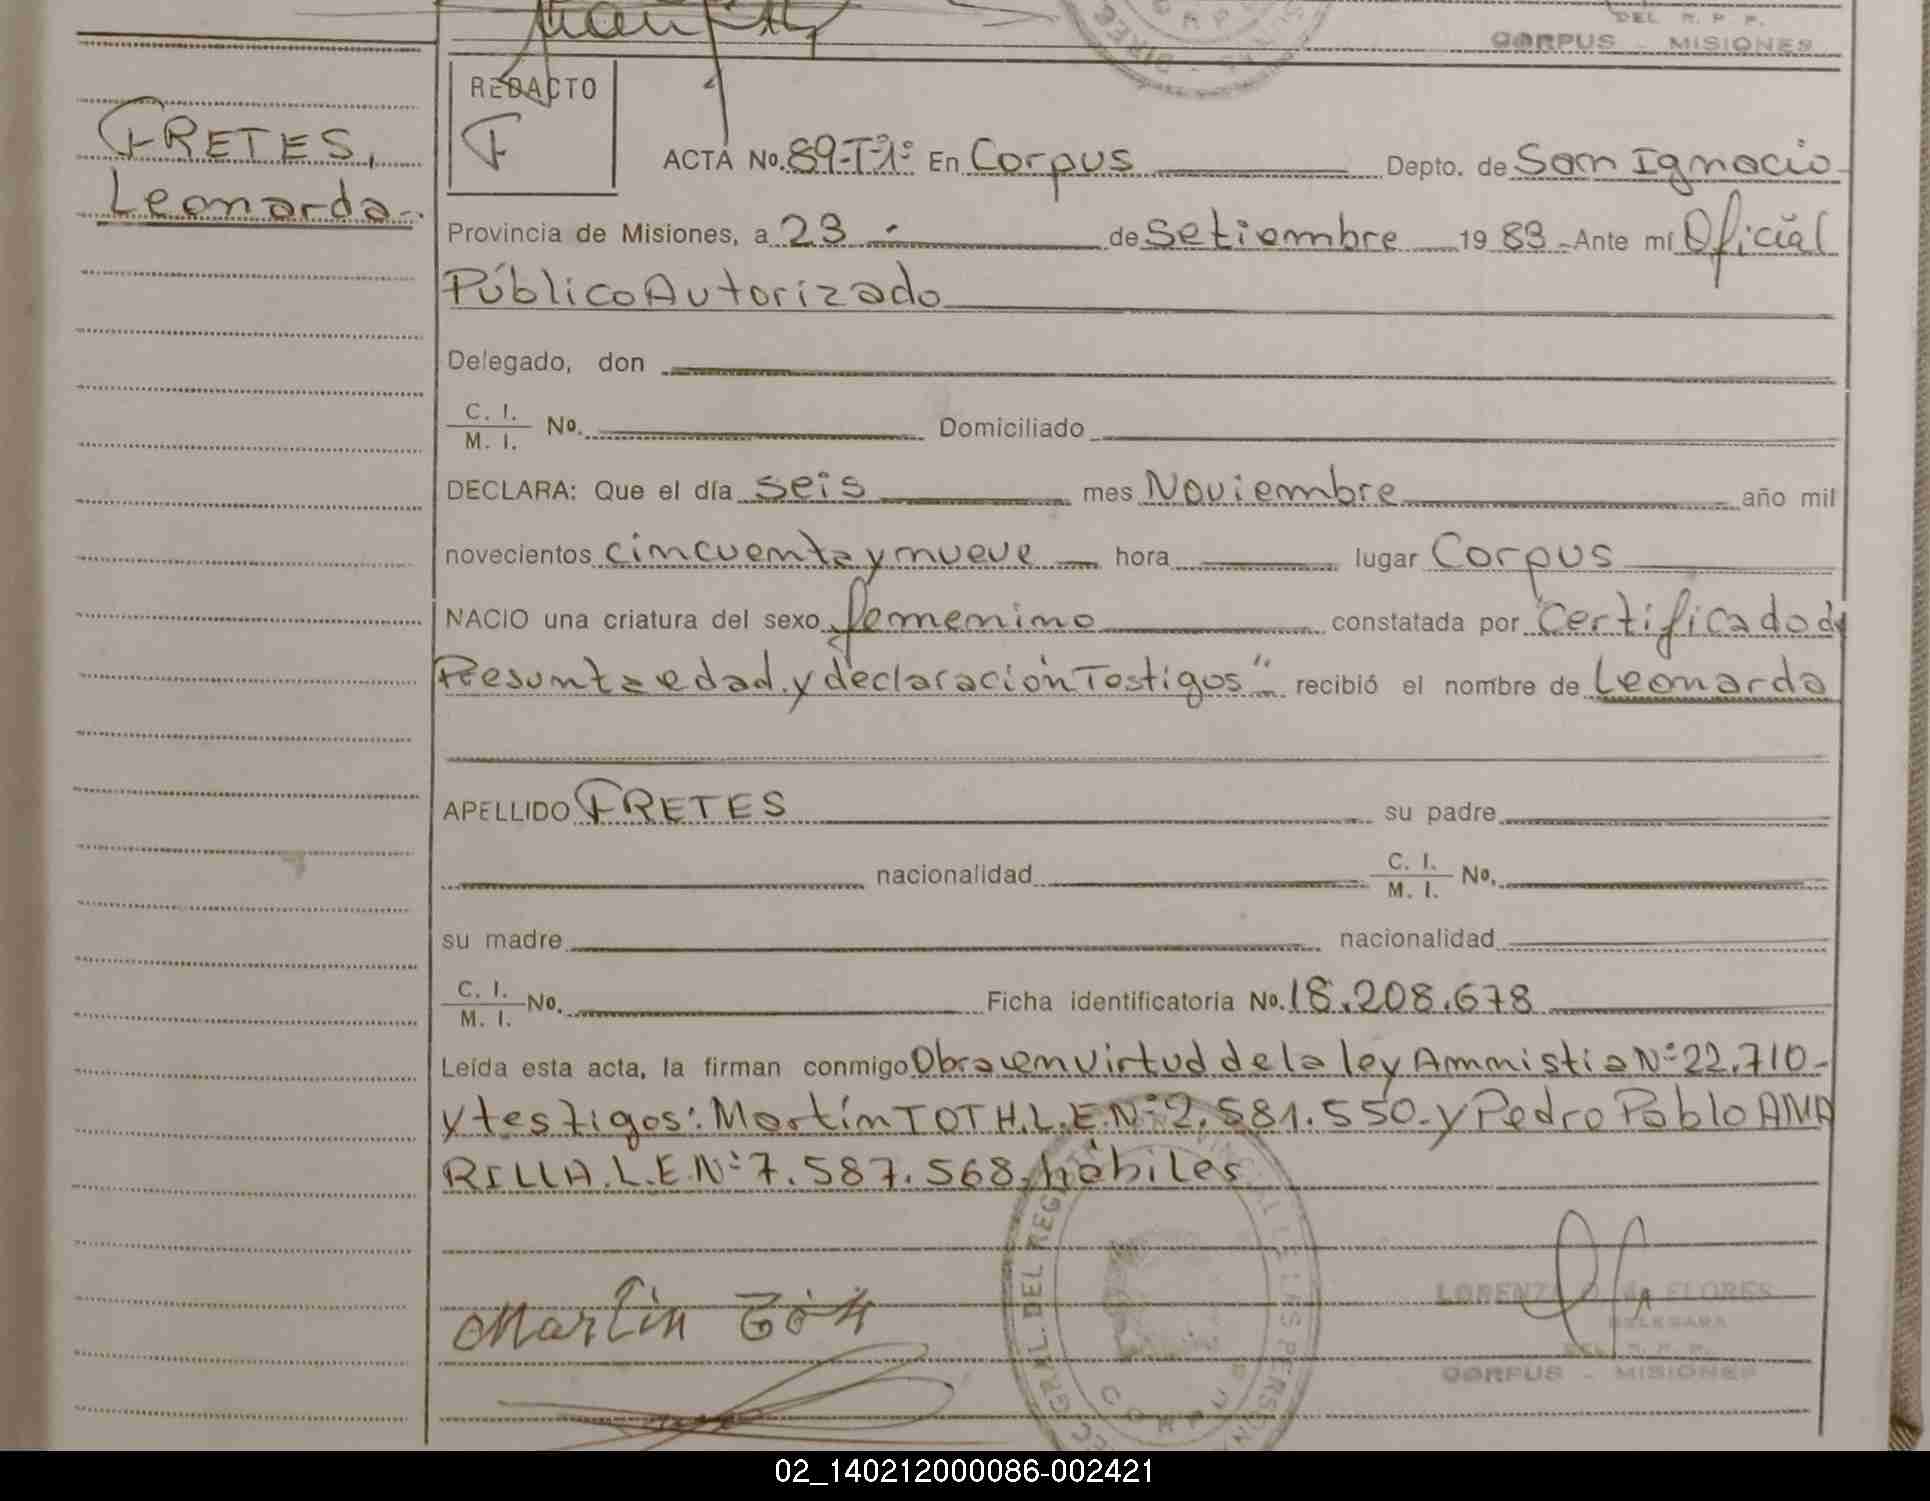 DEL R. P. P.
CORPUS - MISIONES
FRETES,
Leonarda.-
REDACTO
F
ACTA No. 89-Tº1º En Corpus Depto. de San Ignacio
Provincia de Misiones, a 23 de Setiembre 1983 - Ante mí Oficial
Público Autorizado
Delegado, don
C. I.
M. I. No. Domiciliado
DECLARA: Que el día seis mes Noviembre año mil
novecientos cincuenta y nueve hora lugar Corpus
NACIO una criatura del sexo femenino constatada por "Certificado de
Presunta edad y declaración Testigos" recibió el nombre de Leonarda
APELLIDO FRETES su padre
nacionalidad C. I.
M. I. No.
su madre nacionalidad
C. I.
M. I. No. Ficha identificatoria No. 18.208.678
Leída esta acta, la firman conmigo Obra en virtud de la ley Amnistia Nº 22.710-
y testigos: Martín TOTH. L.E.Nº 2.581.550- y Pedro Pablo AMA
RILLA. L.E.Nº 7.587.568, hábiles
Martin Tóth
FLORES
DELEGADA
DEL R. P. P.
CORPUS - MISIONES
02_140212000086-002421